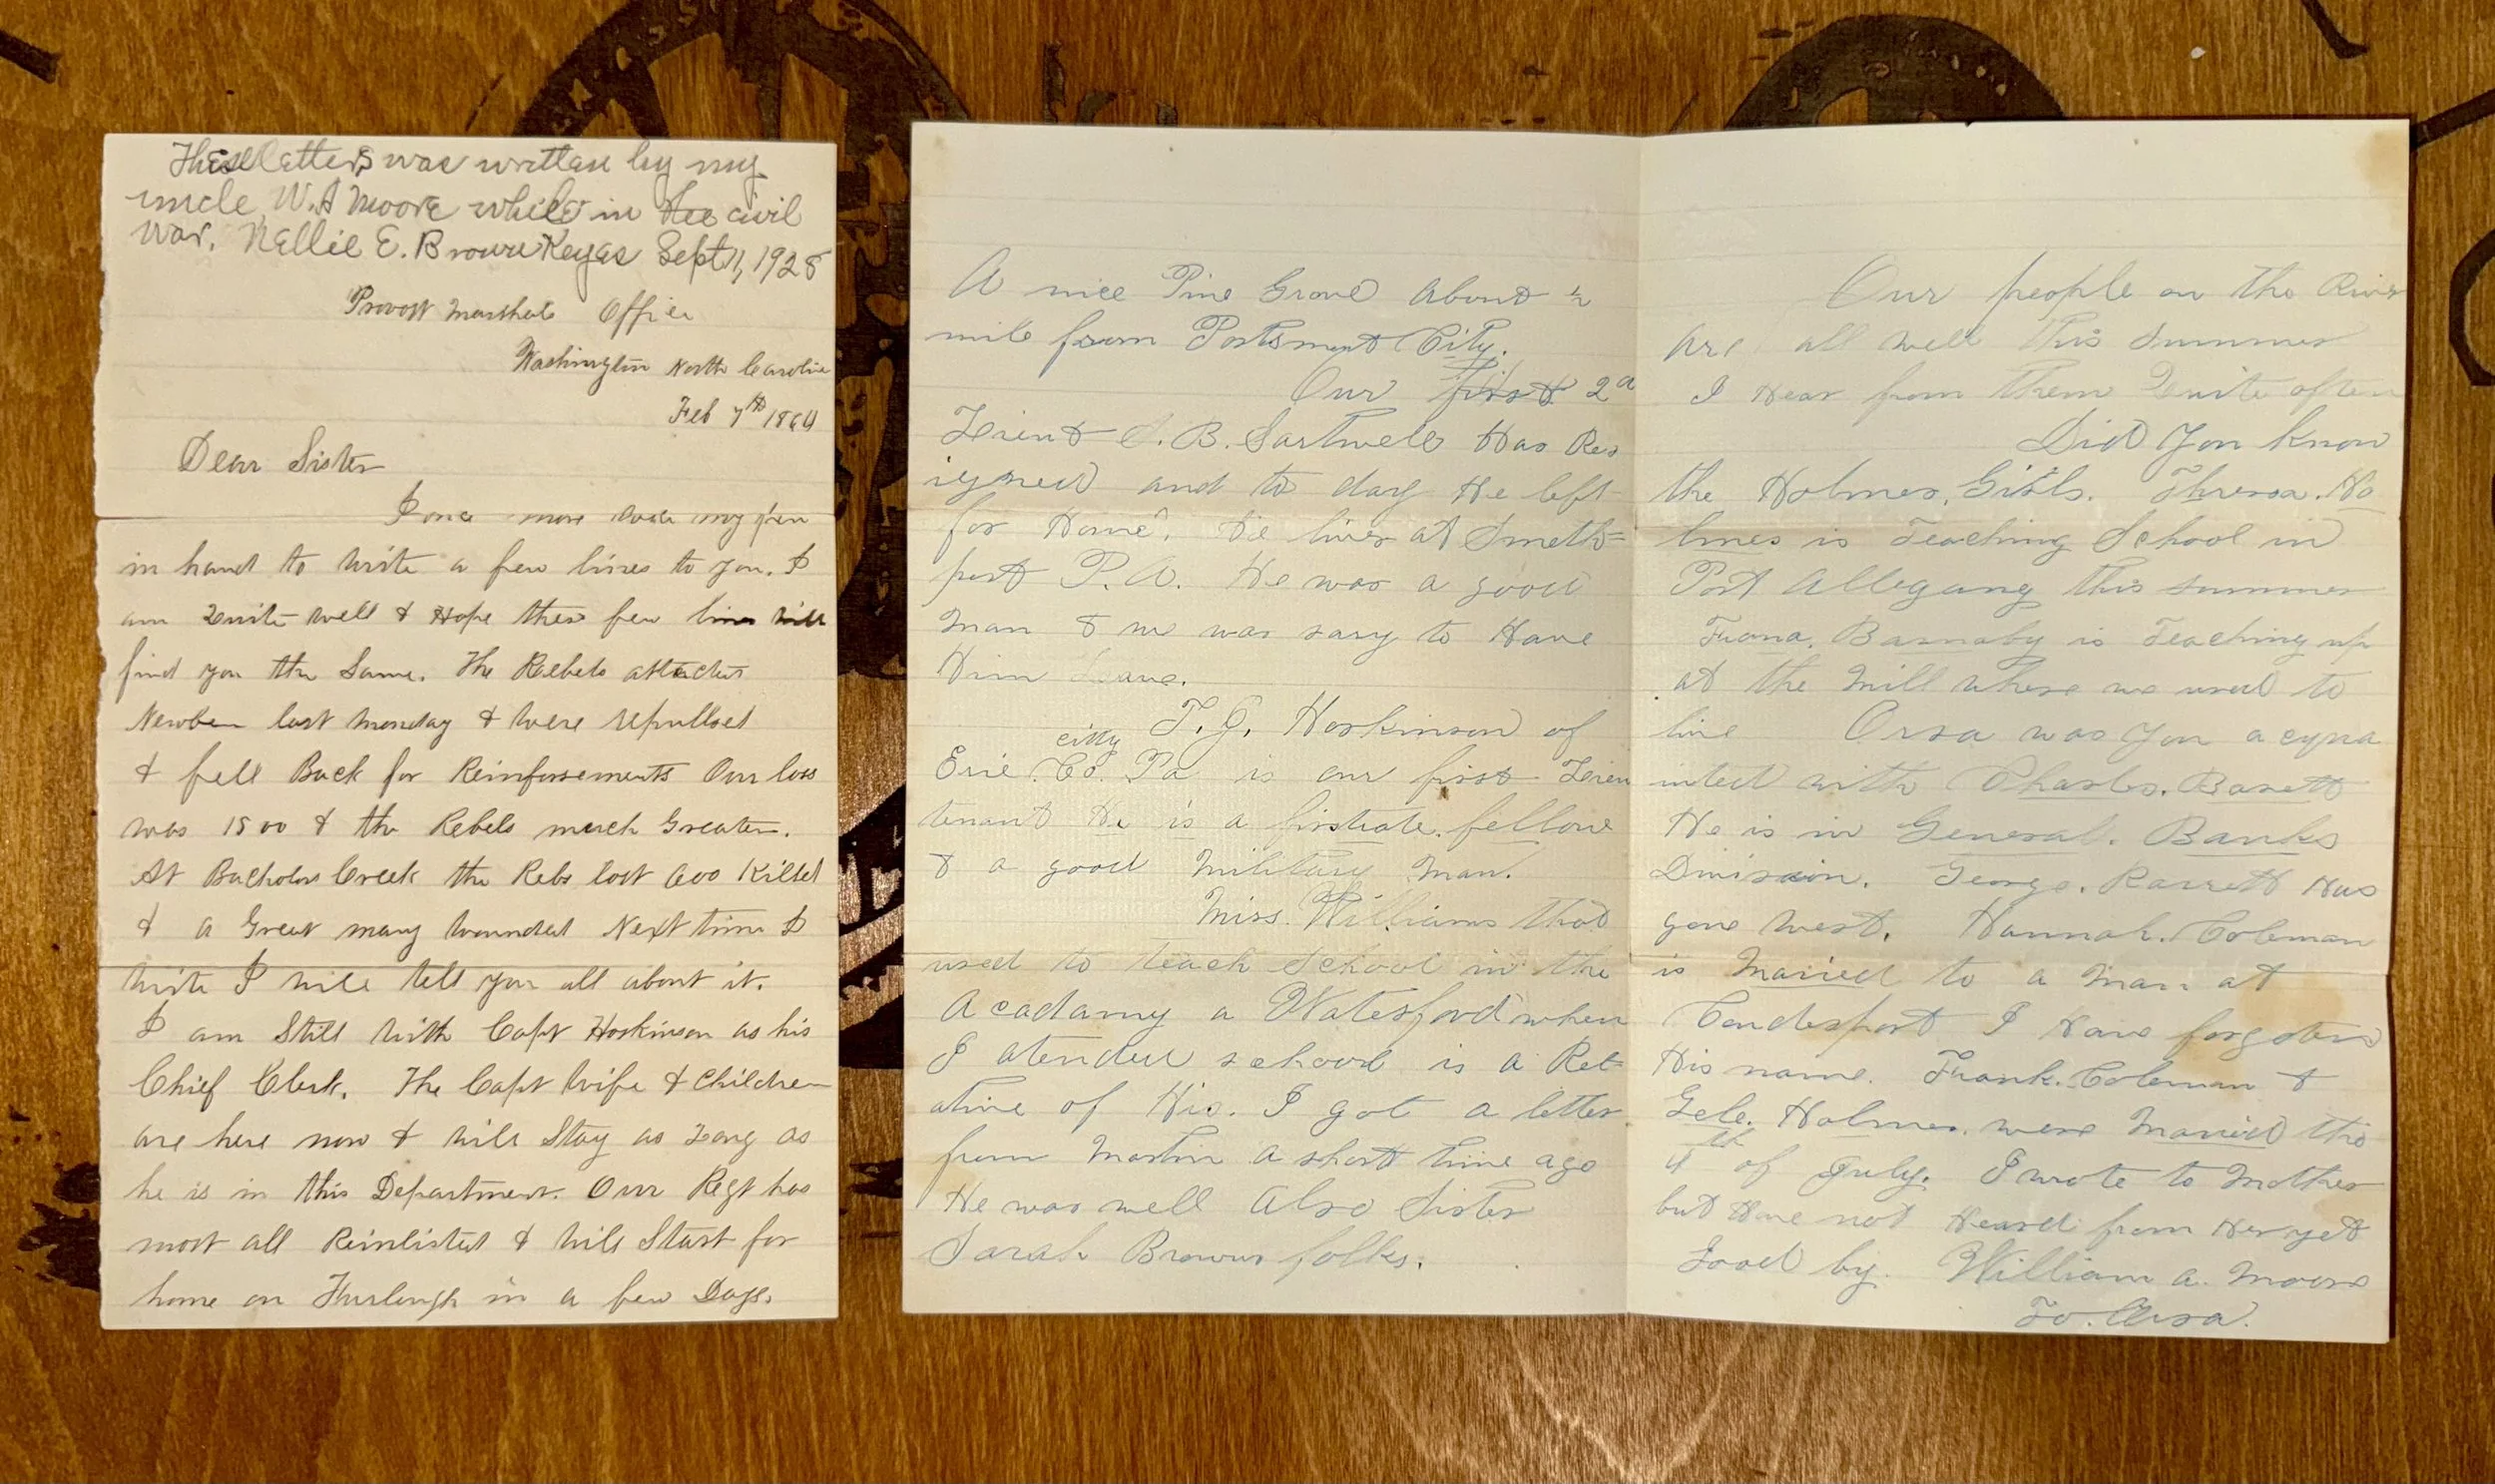 These letters was written by my
uncle W.A Moore while in the civil
war. Nellie E. Brown Keyes Sept 1, 1928
Provost Marshals Office
Washington North Carolina
Feb 7th 1864
Dear Sister
I once more take my pen
in hand to write a few lines to you. I
am Quite well & Hope these few lines will
find you the Same. The Rebels attacked
Newbern last Monday & were repulsed
& fell Back for Reinforsements Our loss
was 1500 & the Rebels much Greater.
At Bacholors Creek the Rebs lost 600 Killed
& a Great many wounded Next time I
write I will tell you all about it.
I am Still with Capt Hoskinson as his
Chief Clerk. The Capt Wife & Children
are here now & will Stay as Long as
he is in this Department. Our Regt has
most all Reinlisted & will Start for
home on Furlough in a few Days.
A nice Pine Grove About ½
mile from Portsmont City.
Our first 2d
Leient S. B. Sartwell Has Res
igned and to day He left
for Home. He lives at Smeth-
port P.A. He was a good
Man & we was sary to Have
Him Leave.
T. J. Hoskinson of
Erie city Co. Pa is our first Leieu
tenant He is a firstrate fellow
& a good Military Man.
Miss. Williams that
used to teach School in the
Acadamy a Waterford when
I atended school is a Rel-
ative of His. I got a letter
from Martin a short time ago
He was well Also Sister
Sarah Browns folks.
Our people on the River
are all well this summer
I Hear from them Quite often
Did you know
the Holmes, Girls. Thresa. Ho
lmes is Teaching School in
Port Allegany this summer
Barnaby is Teaching up
at the Mill where we used to
live Orsa was you acqua
inted with Charles. Barett
He is in General. Banks
Division. George. Barrett Has
gone west. Hannah. Coleman
is Maried to a Man at
Coudesport I Have forgoten
His name. Frank. Coleman &
Gele. Holmes. were Maried the
4th of July. I wrote to Mother
but Have not Heard from Her yet
Good by. William A. Moore
To. Orsa.